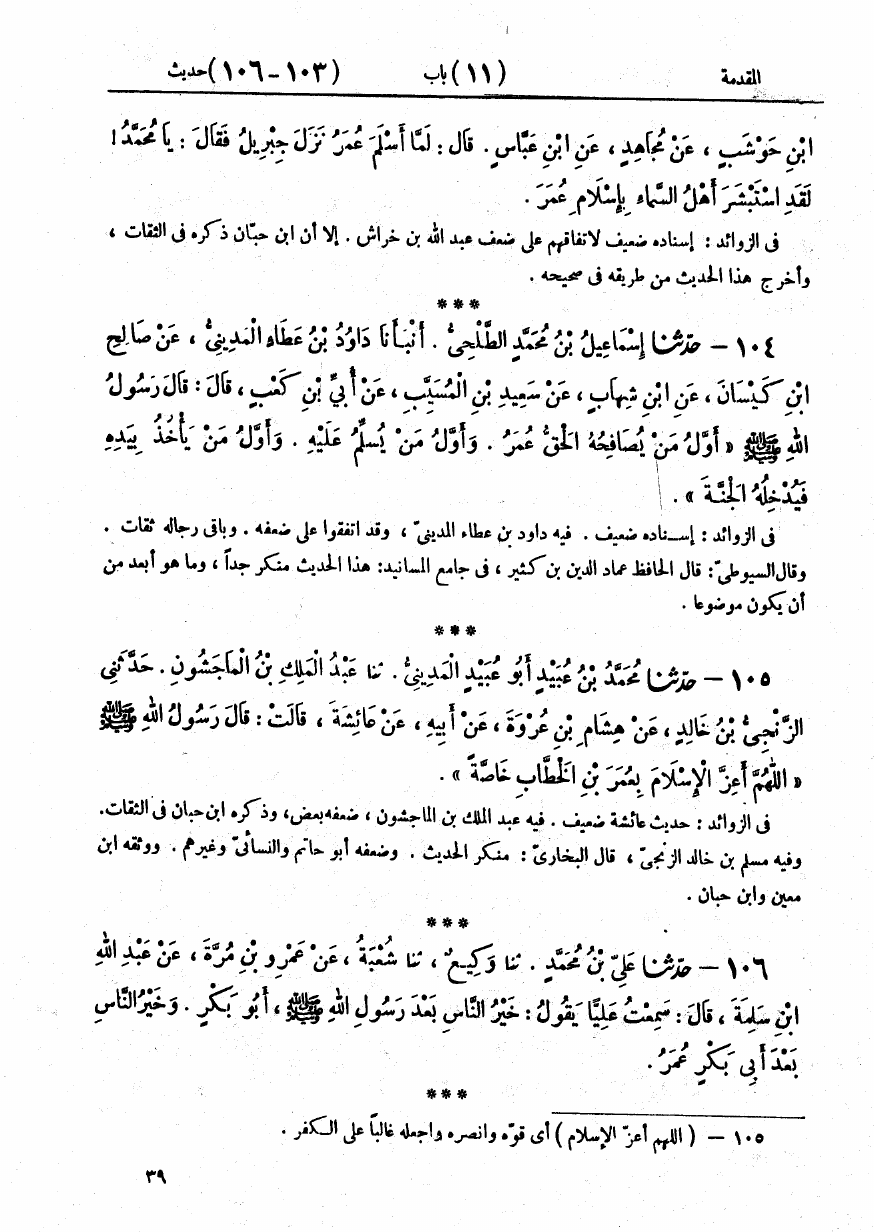 المقدمة (١١) باب (١٠٣-١٠٦) حديث
ابْنِ حَوْشَبٍ ، عَنْ مُجَاهِدٍ ، عَنِ ابْنِ عَبَّاسٍ . قال : لَمَّا أَسْلَمَ عُمَرُ نَزَلَ جِبْرِيلُ فَقَالَ : يَا مُحَمَّدُ !
لَقَدِ اسْتَبْشَرَ أَهْلُ السَّمَاءِ بِإِسْلَامِ عُمَرَ .
فى الزوائد : إسناده ضعيف لاتفاقهم على ضعف عبد الله بن خراش . إلا أن ابن حبّان ذكره فى الثقات ،
وأخرج هذا الحديث من طريقه فى صحيحه .
***
١٠٤ – حدّثنا إِسْمَاعِيلُ بْنُ مُحَمَّدٍ الطَّلْحِىُّ . أَنْبَأَنَا دَاوُدُ بْنُ عَطَاءٍ الْمَدِينِىُّ ، عَنْ صَالِحِ
ابْنِ كَيْسَانَ ، عَنِ ابْنِ شِهَابٍ ، عَنْ سَعِيدِ بْنِ الْمُسَيَّبِ ، عَنْ أُبَيِّ بْنِ كَعْبٍ ، قَالَ : قَالَ رَسُولُ
اللهِ ﷺ « أَوَّلُ مَنْ يُصَافِحُهُ الْحَقُّ عُمَرُ . وَأَوَّلُ مَنْ يُسَلِّمُ عَلَيْهِ . وَأَوَّلُ مَنْ يَأْخُذُ بِيَدِهِ
فَيُدْخِلُهُ الْجَنَّةَ » .
فى الزوائد : إسناده ضعيف . فيه داود بن عطاء المدينىّ ، وقد اتفقوا على ضعفه . وباقى رجاله ثقات .
وقال السيوطىّ : قال الحافظ عماد الدين بن كثير ، فى جامع المسانيد : هذا الحديث منكر جداً ، وما هو أبعد من
أن يكون موضوعا .
***
١٠٥ – حدّثنا مُحَمَّدُ بْنُ عُبَيْدٍ أَبُو عُبَيْدٍ الْمَدِينِىُّ . ثنا عَبْدُ الْمَلِكِ بْنُ الْمَاجَشُونِ . حَدَّثَنِى
الزَّنْجِىُّ بْنُ خَالِدٍ ، عَنْ هِشَامِ بْنِ عُرْوَةَ ، عَنْ أَبِيهِ ، عَنْ عَائِشَةَ ، قَالَتْ : قَالَ رَسُولُ اللهِ ﷺ
« اللَّهُمَّ أَعِزَّ الْإِسْلَامَ بِعُمَرَ بْنِ الْخَطَّابِ خَاصَّةً » .
فى الزوائد : حديث عائشة ضعيف . فيه عبد الملك بن الماجشون ، ضعفه بعض ، وذكره ابن حبان فى الثقات .
وفيه مسلم بن خالد الزنجىّ ، قال البخارىّ : منكر الحديث . وضعفه أبو حاتم والنسائىّ وغيرهم . ووثقه ابن
معين وابن حبان .
***
١٠٦ – حدّثنا عَلِيُّ بْنُ مُحَمَّدٍ . ثنا وَكِيعٌ ، ثنا شُعْبَةُ ، عَنْ عَمْرِو بْنِ مُرَّةَ ، عَنْ عَبْدِ اللهِ
ابْنِ سَلِمَةَ ، قَالَ : سَمِعْتُ عَلِيًّا يَقُولُ : خَيْرُ النَّاسِ بَعْدَ رَسُولِ اللهِ ﷺ ، أَبُو بَكْرٍ . وَخَيْرُ النَّاسِ
بَعْدَ أَبِى بَكْرٍ عُمَرُ .
***
١٠٥ – ( اللهم أعزّ الإسلام ) أى قوّه وانصره واجعله غالباً على الكفر .
٣٩